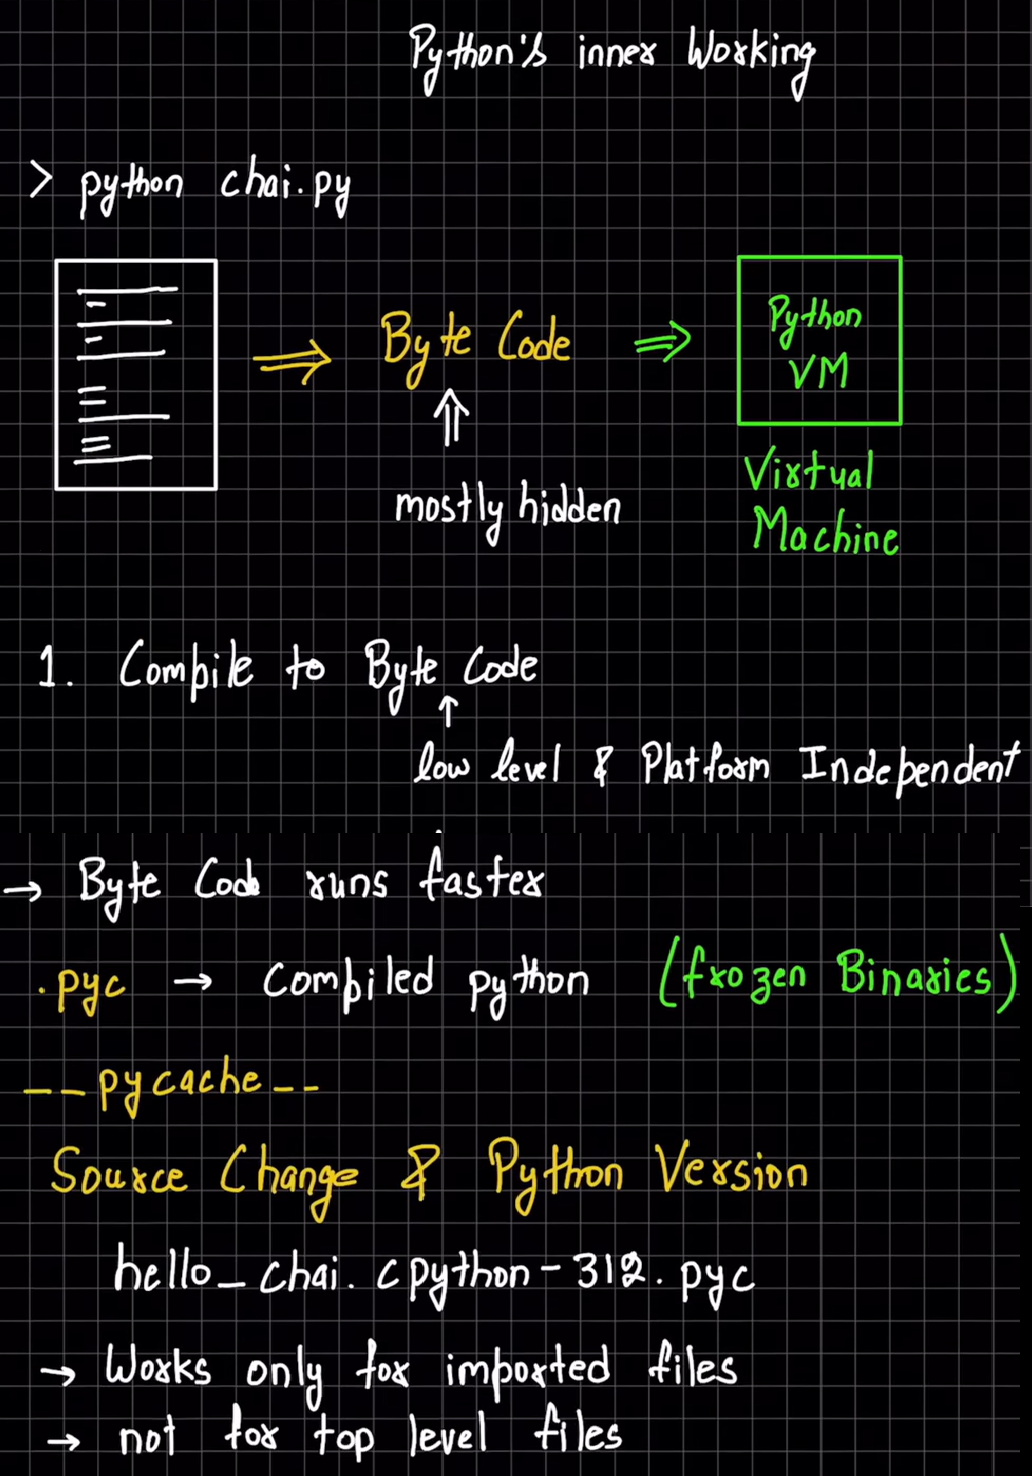 Python's inner Working
> python chai.py
Byte Code
Python
VM
mostly hidden
Virtual
Machine
1. Compile to Byte Code
low level & Platform Independent
→ Byte Code runs faster
.pyc → compiled python (frozen Binaries)
__pycache__
Source Change & Python Version
hello_chai.cpython-312.pyc
→ Works only for imported files
→ not for top level files